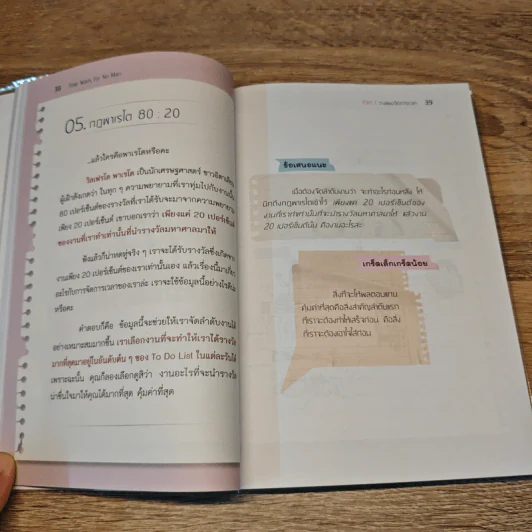 38 Time Waits for No Man
05. กฎพาเรโต 80 : 20
...แล้วใครคือพาเรโตหรือคะ
วิลเฟรโด พาเรโต เป็นนักเศรษฐศาสตร์ ชาวอิตาเลียน
ผู้สังเกตว่า ในทุก ๆ ความพยายามที่เราทุ่มไปกับงานนั้น
80 เปอร์เซ็นต์ของรางวัลที่เราได้รับจะมาจากความพยายาม
เพียง 20 เปอร์เซ็นต์ เขาบอกเราว่า เพียงแค่ 20 เปอร์เซ็นต์
ของงานที่เราทำเท่านั้นที่นำรางวัลมหาศาลมาให้
ฟังแล้วก็น่าหดหู่จริง ๆ เราจะได้รับรางวัลซึ่งเกิดจาก
งานเพียง 20 เปอร์เซ็นต์ของเราเท่านั้นเอง แล้วเรื่องนี้มาเกี่ยว
อะไรกับการจัดการเวลาของเราล่ะ เราจะใช้ข้อมูลนี้อย่างไรดี
หรือคะ
คำตอบก็คือ ข้อมูลนี้จะช่วยให้เราจัดลำดับงานได้
อย่างเหมาะสมมากขึ้น เราเลือกงานที่จะทำให้เราได้รางวัล
มากที่สุดมาอยู่ในอันดับต้น ๆ ของ To Do List ในแต่ละวันได้
เพราะฉะนั้น คุณก็ลองเลือกดูสิว่า งานอะไรที่จะนำรางวัล
น่าชื่นใจมาให้คุณได้มากที่สุด คุ้มค่าที่สุด
39
ข้อเสนอแนะ
เมื่อต้องจัดลำดับงานว่า จะทำอะไรก่อนหลัง ให้
นึกถึงกฎพาเรโตเข้าไว้ เพียงแค่ 20 เปอร์เซ็นต์ของ
งานที่เราทำเท่านั้นที่จะนำรางวัลมหาศาลมาให้ แล้วงาน
20 เปอร์เซ็นต์นั้น คืองานอะไรล่ะ
เกร็ดเล็กเกร็ดน้อย
สิ่งที่จะให้ผลตอบแทน
คุ้มค่าที่สุดคือสิ่งสำคัญลำดับแรก
ที่เราจะต้องทำให้เสร็จก่อน คือสิ่ง
ที่เราจะต้องเอาใจใส่ก่อน